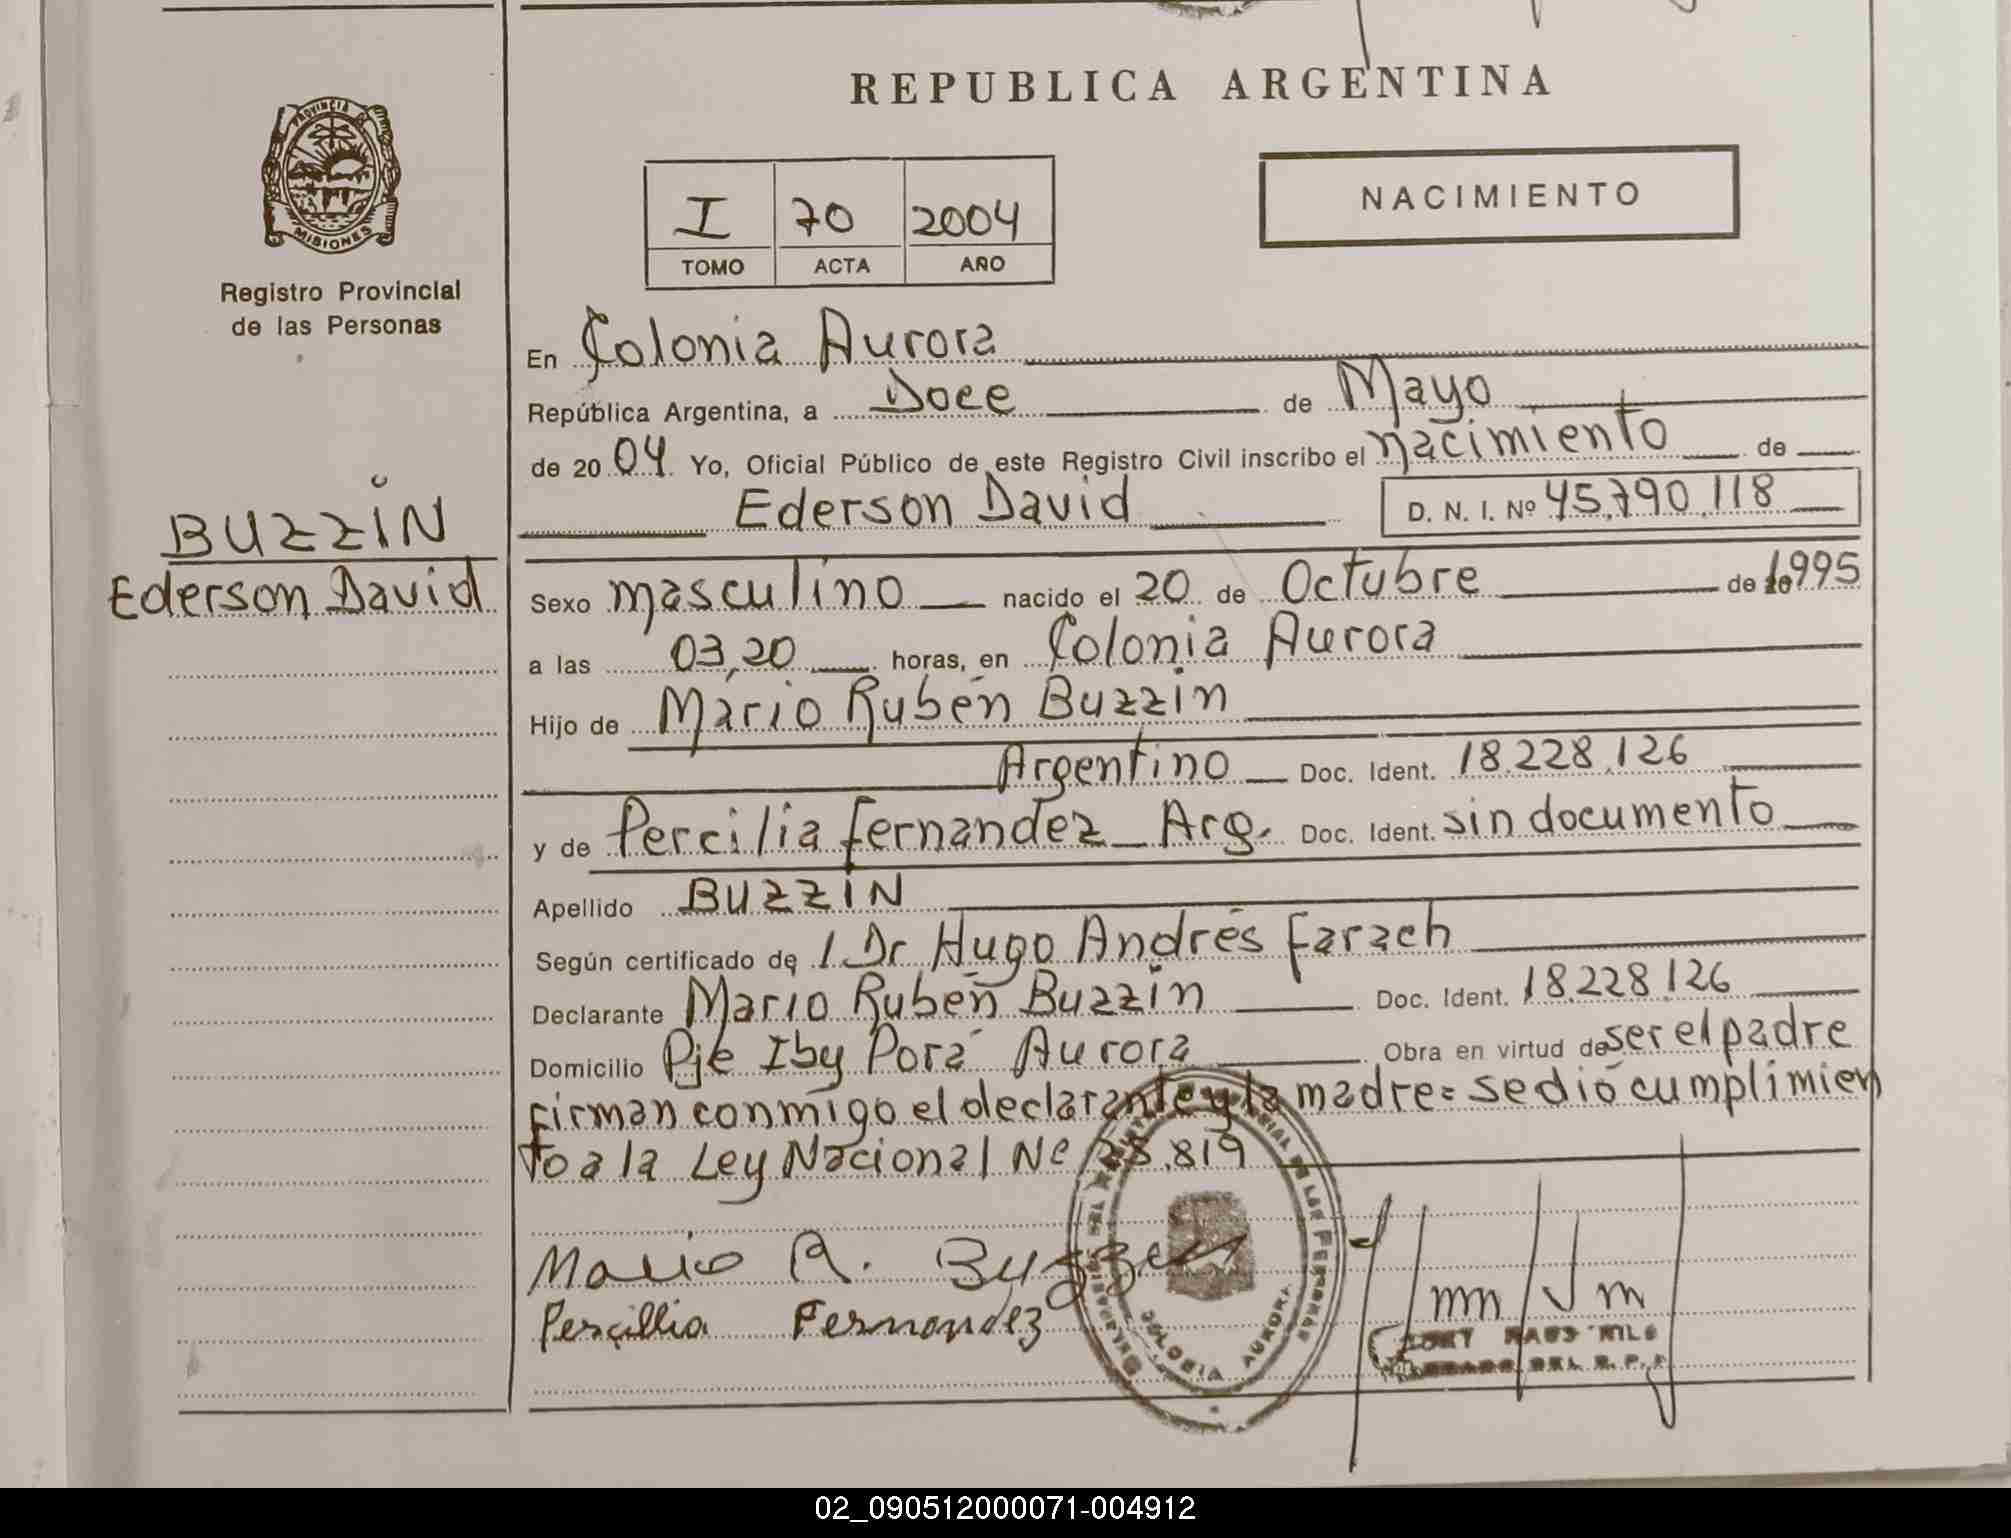 REPUBLICA ARGENTINA
PROVINCIA DE
MISIONES
Registro Provincial
de las Personas
I 70 2004
TOMO ACTA AÑO
NACIMIENTO
BUZZIN
Ederson David
En Colonia Aurora
República Argentina, a Doce de Mayo
de 2004 Yo, Oficial Público de este Registro Civil inscribo el nacimiento de
Ederson David D. N. I. Nº 45.790.118
Sexo masculino nacido el 20 de Octubre de 1995
a las 03,20 horas, en Colonia Aurora
Hijo de Mario Rubén Buzzin
Argentino Doc. Ident. 18.228.126
y de Percilia Fernandez Arg. Doc. Ident. sin documento
Apellido BUZZIN
Según certificado de Dr Hugo Andrés Farach
Declarante Mario Rubén Buzzin Doc. Ident. 18.228.126
Domicilio Pje Iby Porá Aurora Obra en virtud de ser el padre
Firman conmigo el declarante y la madre = se dió cumplimien
to a la Ley Nacional Nº 25.819
Mario R. Buzzin
Percillia Fernandez
COLONIA AURORA
02_090512000071-004912